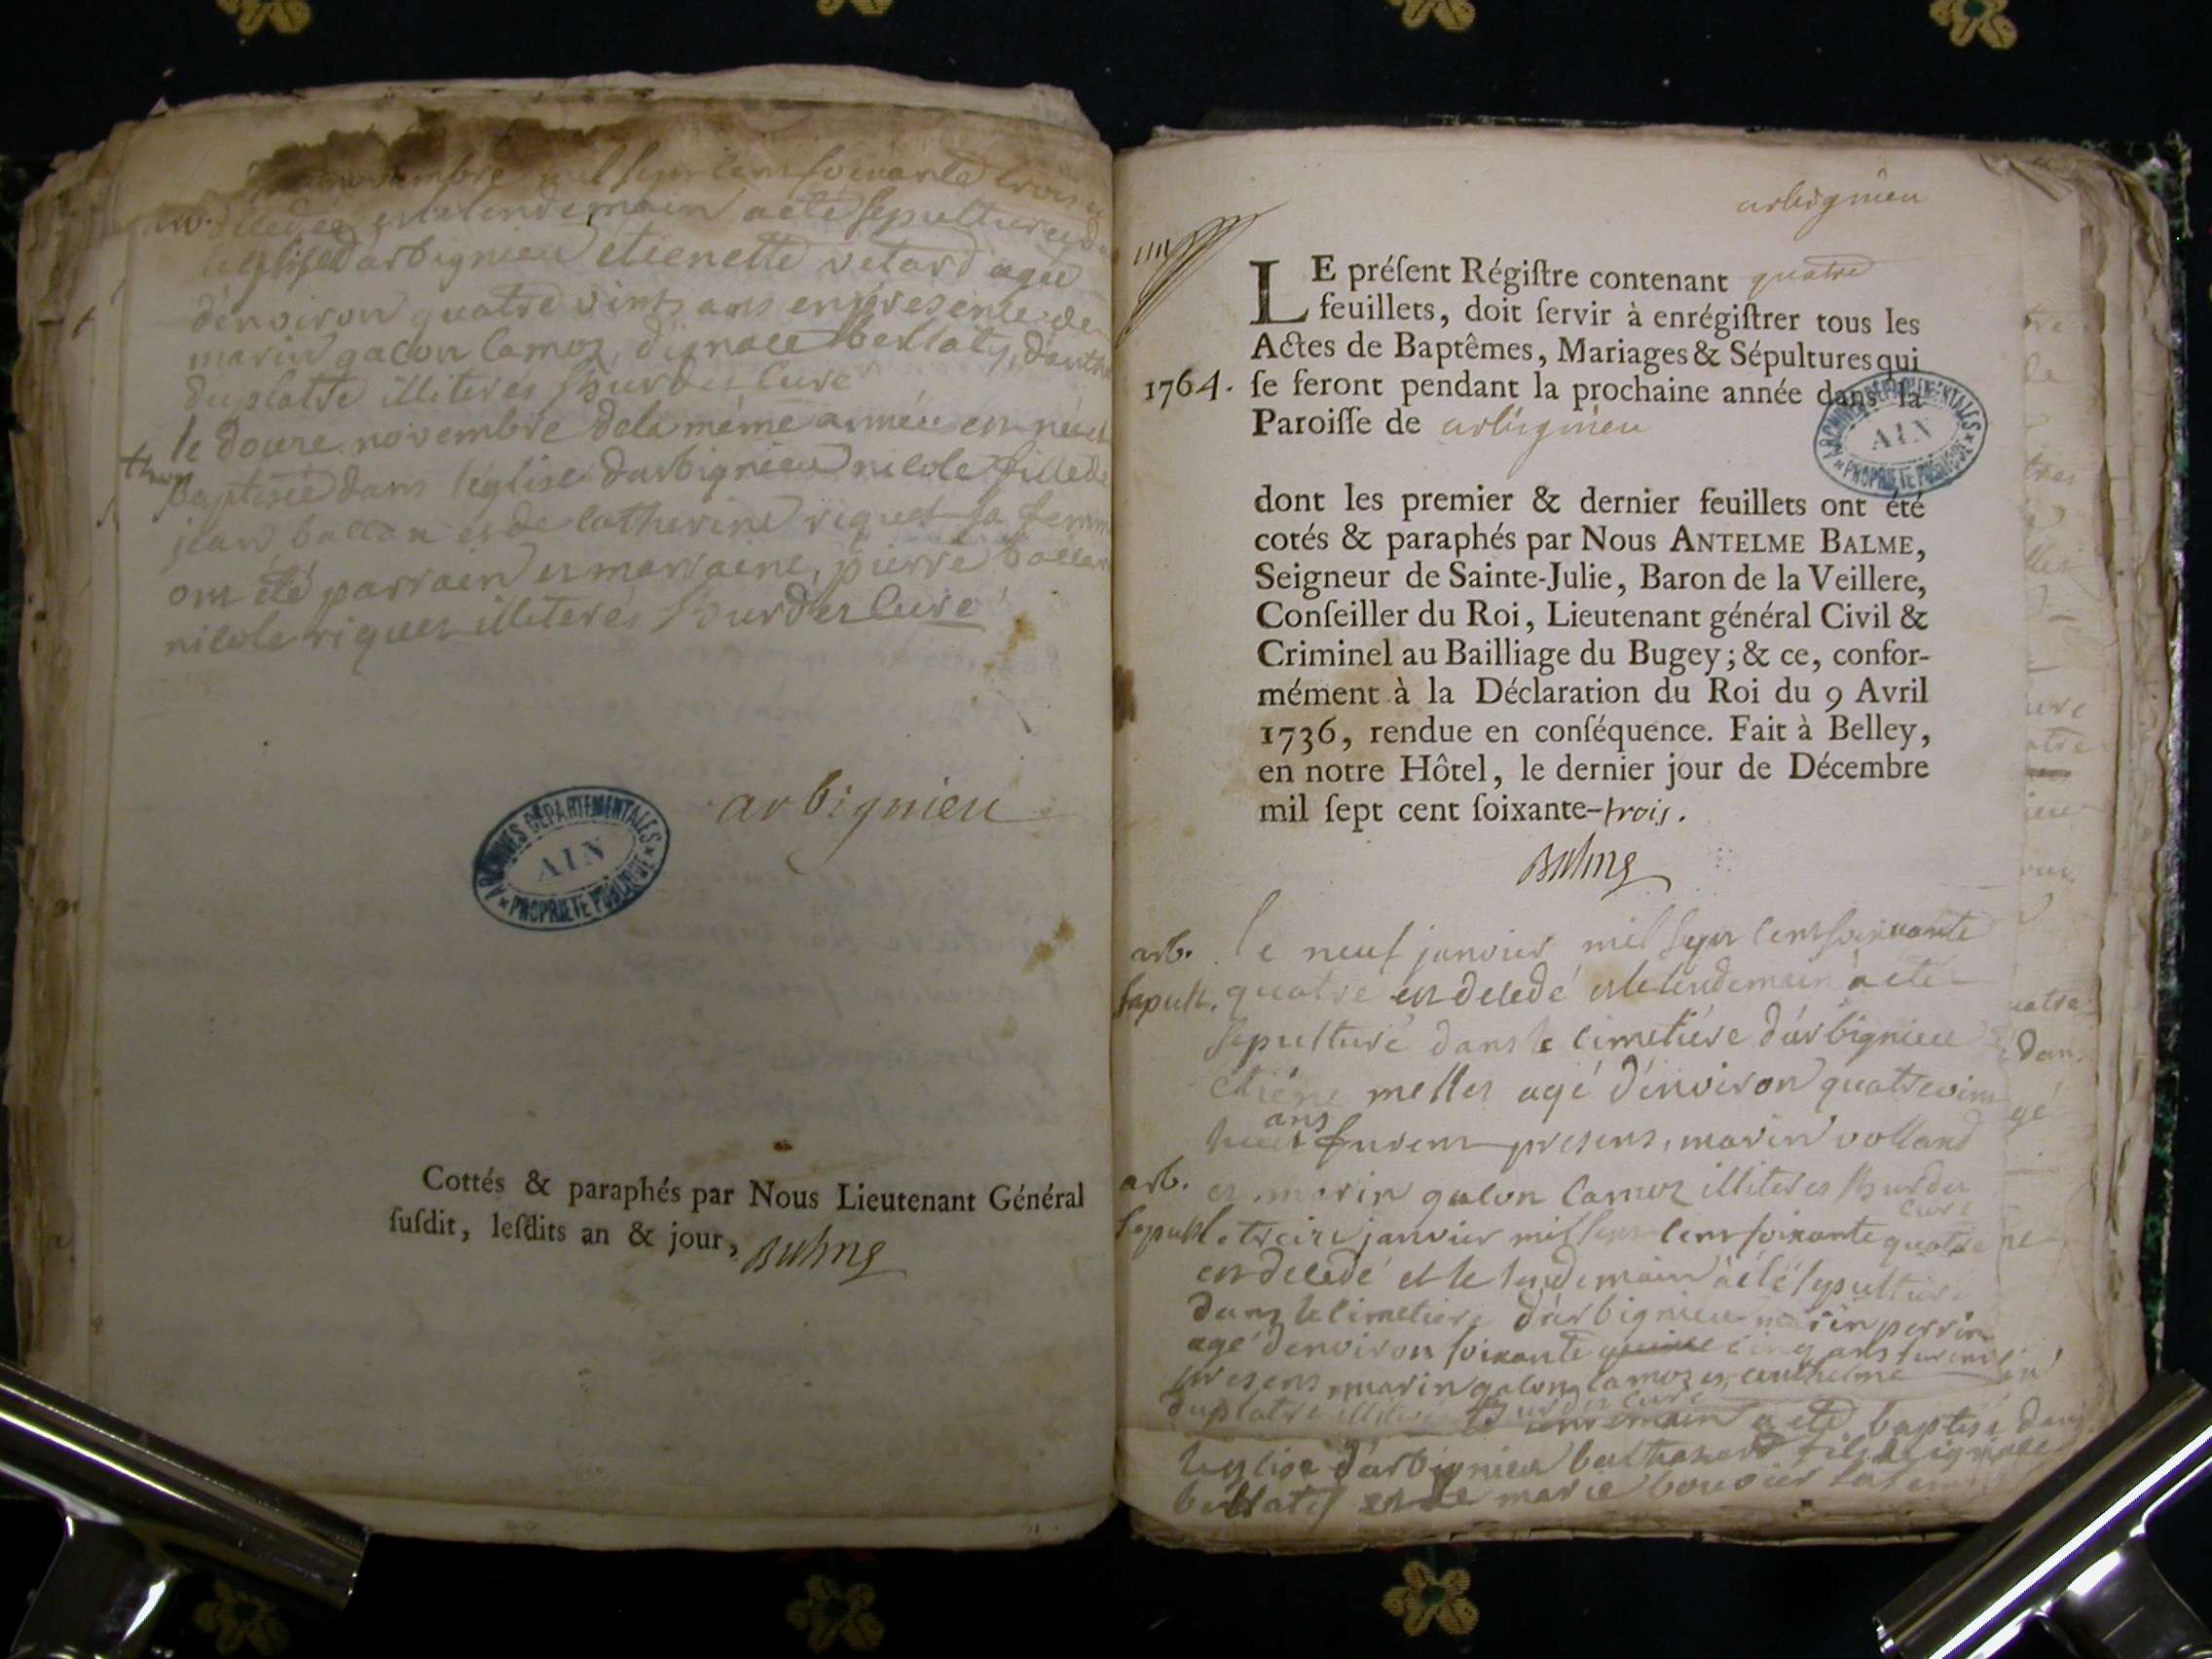 novembre mil sept cens soixante trois
decedée et le lendemain a eté sepulturée
l'eglise d'arbignieu étienette vetard agée
d'environ quatre vint ans en presence de
marin galon lamoz, d'ignace berlaty, d'anth
duplatre illiteres Burdet Curé
le douze novembre de la méme année est née et
baptisée dans l'église d'arbignieu nicole fille de
jean ballan et de catherine riquet sa femme
ont été parrain et marraine, pierre ballan
nicole riquet illiterés Burdet Curé
arbignieu
ARCHIVES DÉPARTEMENTALES
AIN
* PROPRIÉTÉ PUBLIQUE *
Cottés & paraphés par Nous Lieutenant Général
ſuſdit, leſdits an & jour, Balme
arbignieu
LE préſent Régiſtre contenant quatre
feuillets, doit ſervir à enrégiſtrer tous les
Actes de Baptêmes, Mariages & Sépultures qui
1764. ſe feront pendant la prochaine année dans la
Paroiſſe de arbignieu
ARCHIVES DÉPARTEMENTALES
AIN
* PROPRIÉTÉ PUBLIQUE *
dont les premier & dernier feuillets ont été
cotés & paraphés par Nous ANTELME BALME,
Seigneur de Sainte-Julie, Baron de la Veillere,
Conſeiller du Roi, Lieutenant général Civil &
Criminel au Bailliage du Bugey; & ce, confor-
mément à la Déclaration du Roi du 9 Avril
1736, rendue en conſéquence. Fait à Belley,
en notre Hôtel, le dernier jour de Décembre
mil ſept cent ſoixante-trois.
Balme
arb. le neuf janvier mil sept cens soixante
sepult. quatre est decedé et le lendemain a eté
sepulturé dans le cimetiére d'arbignieu
etiéne mellet agé d'environ quatre vint
huit ans furent presens, marin volland
arb. et marin galon lamoz illiteres Burdet
curé
sepult. le treize janvier mil sept cens soixante quatre
est decedé et le lendemain a eté sepulturé
dans le cimetiere d'arbignieu marin perrin
agé d'environ soixante cinq ans furent
presens marin galon lamoz et anthelme
duplatre Burdet curé
a eté baptisé dans
l'eglise d'arbignieu balthazard fils de ignace
berlaty et de marie bouvier